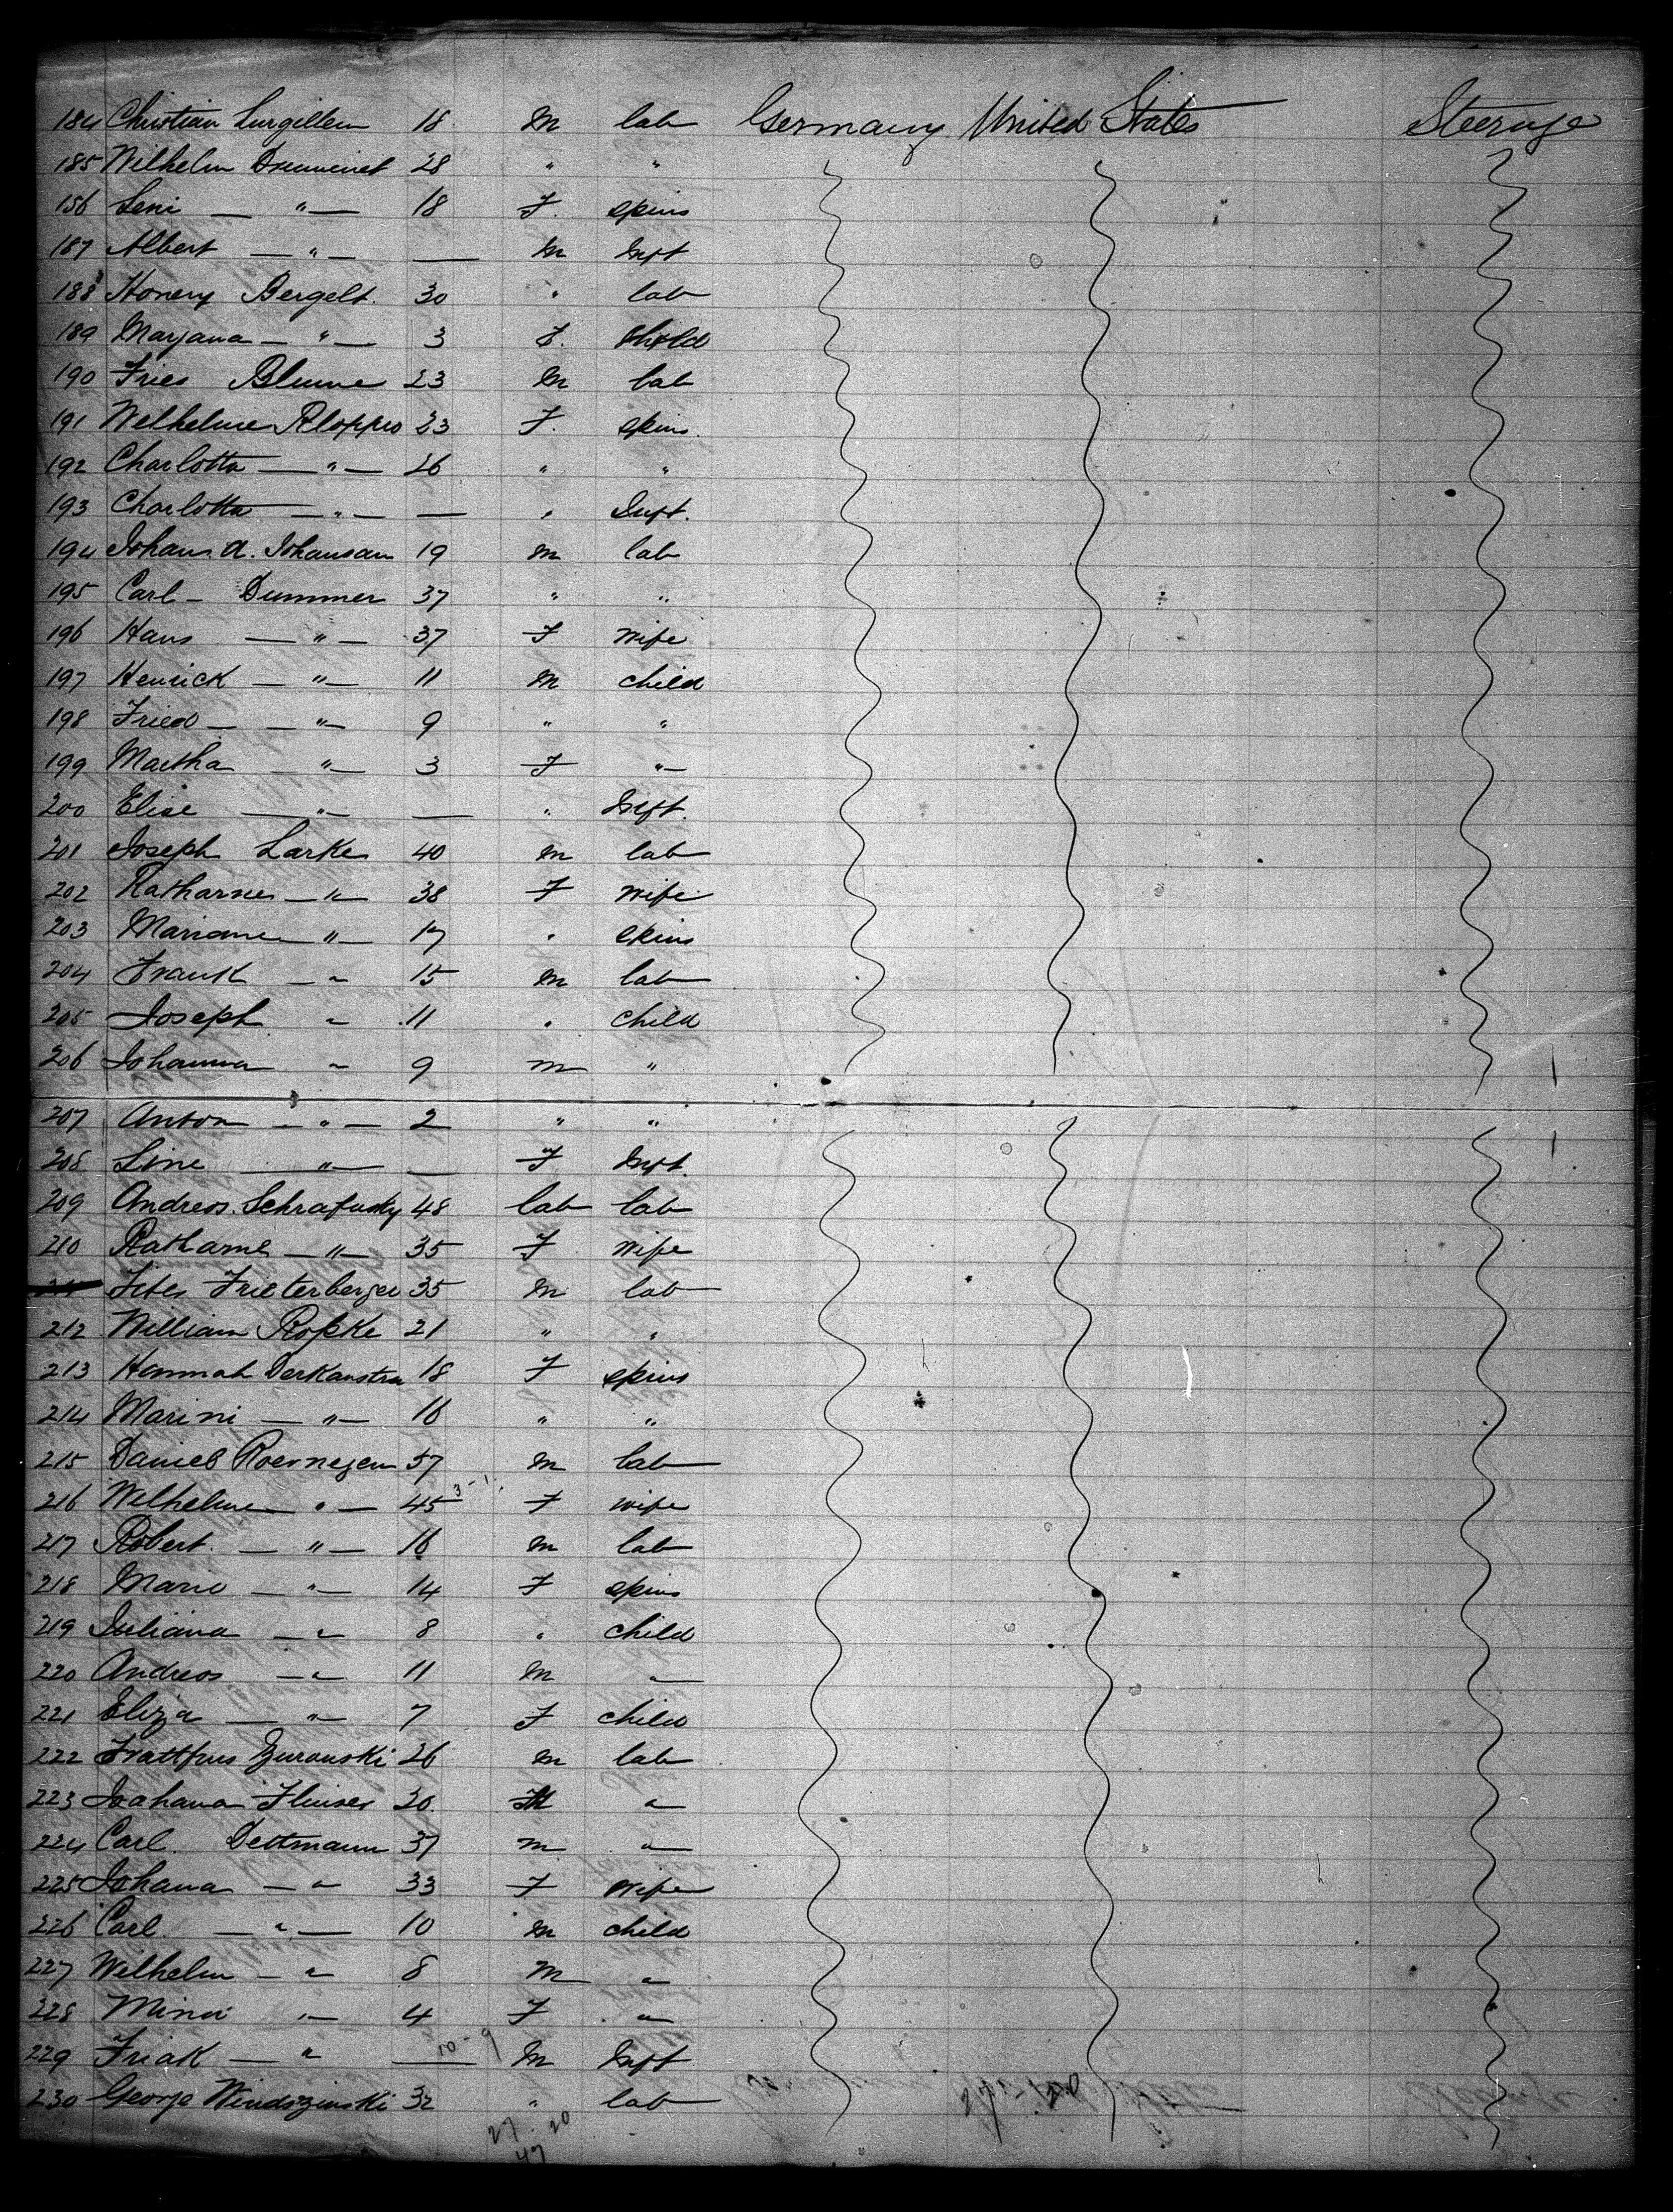 184 Christian Lurgillem 18 M lab Germany United States Steerage
185 Wilhelm 28 " "
186 Leni — " — 18 F. spins
187 Albert — " — — M Inft
188 Honery Bergelt. 30 " lab
189 Maryana — " — 3 F. child
190 Fries Blume 23 M lab
191 Welhelme Kloppro 23 F. spins.
192 Charlotta — " — 26 " "
193 Charlotta — " — — " Inft.
194 Johan. A. Johansan 19 M lab
195 Carl – Dummer 37 " "
196 Hans — " — 37 F wife
197 Henrick — " — 11 M child
198 Fried — — " — 9 " "
199 Martha — " — 3 F " —
200 Elise — " — — " Inft.
201 Joseph Larke 40 M lab
202 Katharne — " — 38 F wife
203 Mariane " — 17 " spins
204 Frank — " 15 M lab
205 Joseph " 11 " child
206 Johanna " 9 m "
207 Anton — " — 2 " "
208 Line — " — — F Inft.
209 Andreos. Schrafusky 48 lab lab
210 Katharne — " — 35 F wife
Frieterberger 35 M lab
212 William Ropke 21 " "
213 Hannah Derkanstra 18 F spins
214 Marini — " — 16 " "
215 Daniel Roevnegen 57 M lab
216 Welhelme " — 45 3-1 F wife
217 Robert. — " — 16 M lab
218 Marie — " — 14 F spins
219 Juliana — " 8 " child
220 Andreos — " 11 M "
221 Eliza — " — 7 F child
222 Guranski 26 M lab
223 Joahana Flinser 30. M "
224 Carl. Dettmann 37 m "
225 Johana — " 33 F wife
226 Carl. — " — 10 M child
227 Welhelm — " 8 M "
228 Mina " — 4 F "
229 Friak — " — 10-9 M Inft
230 George Windszinski 32 " lab
27 20
47